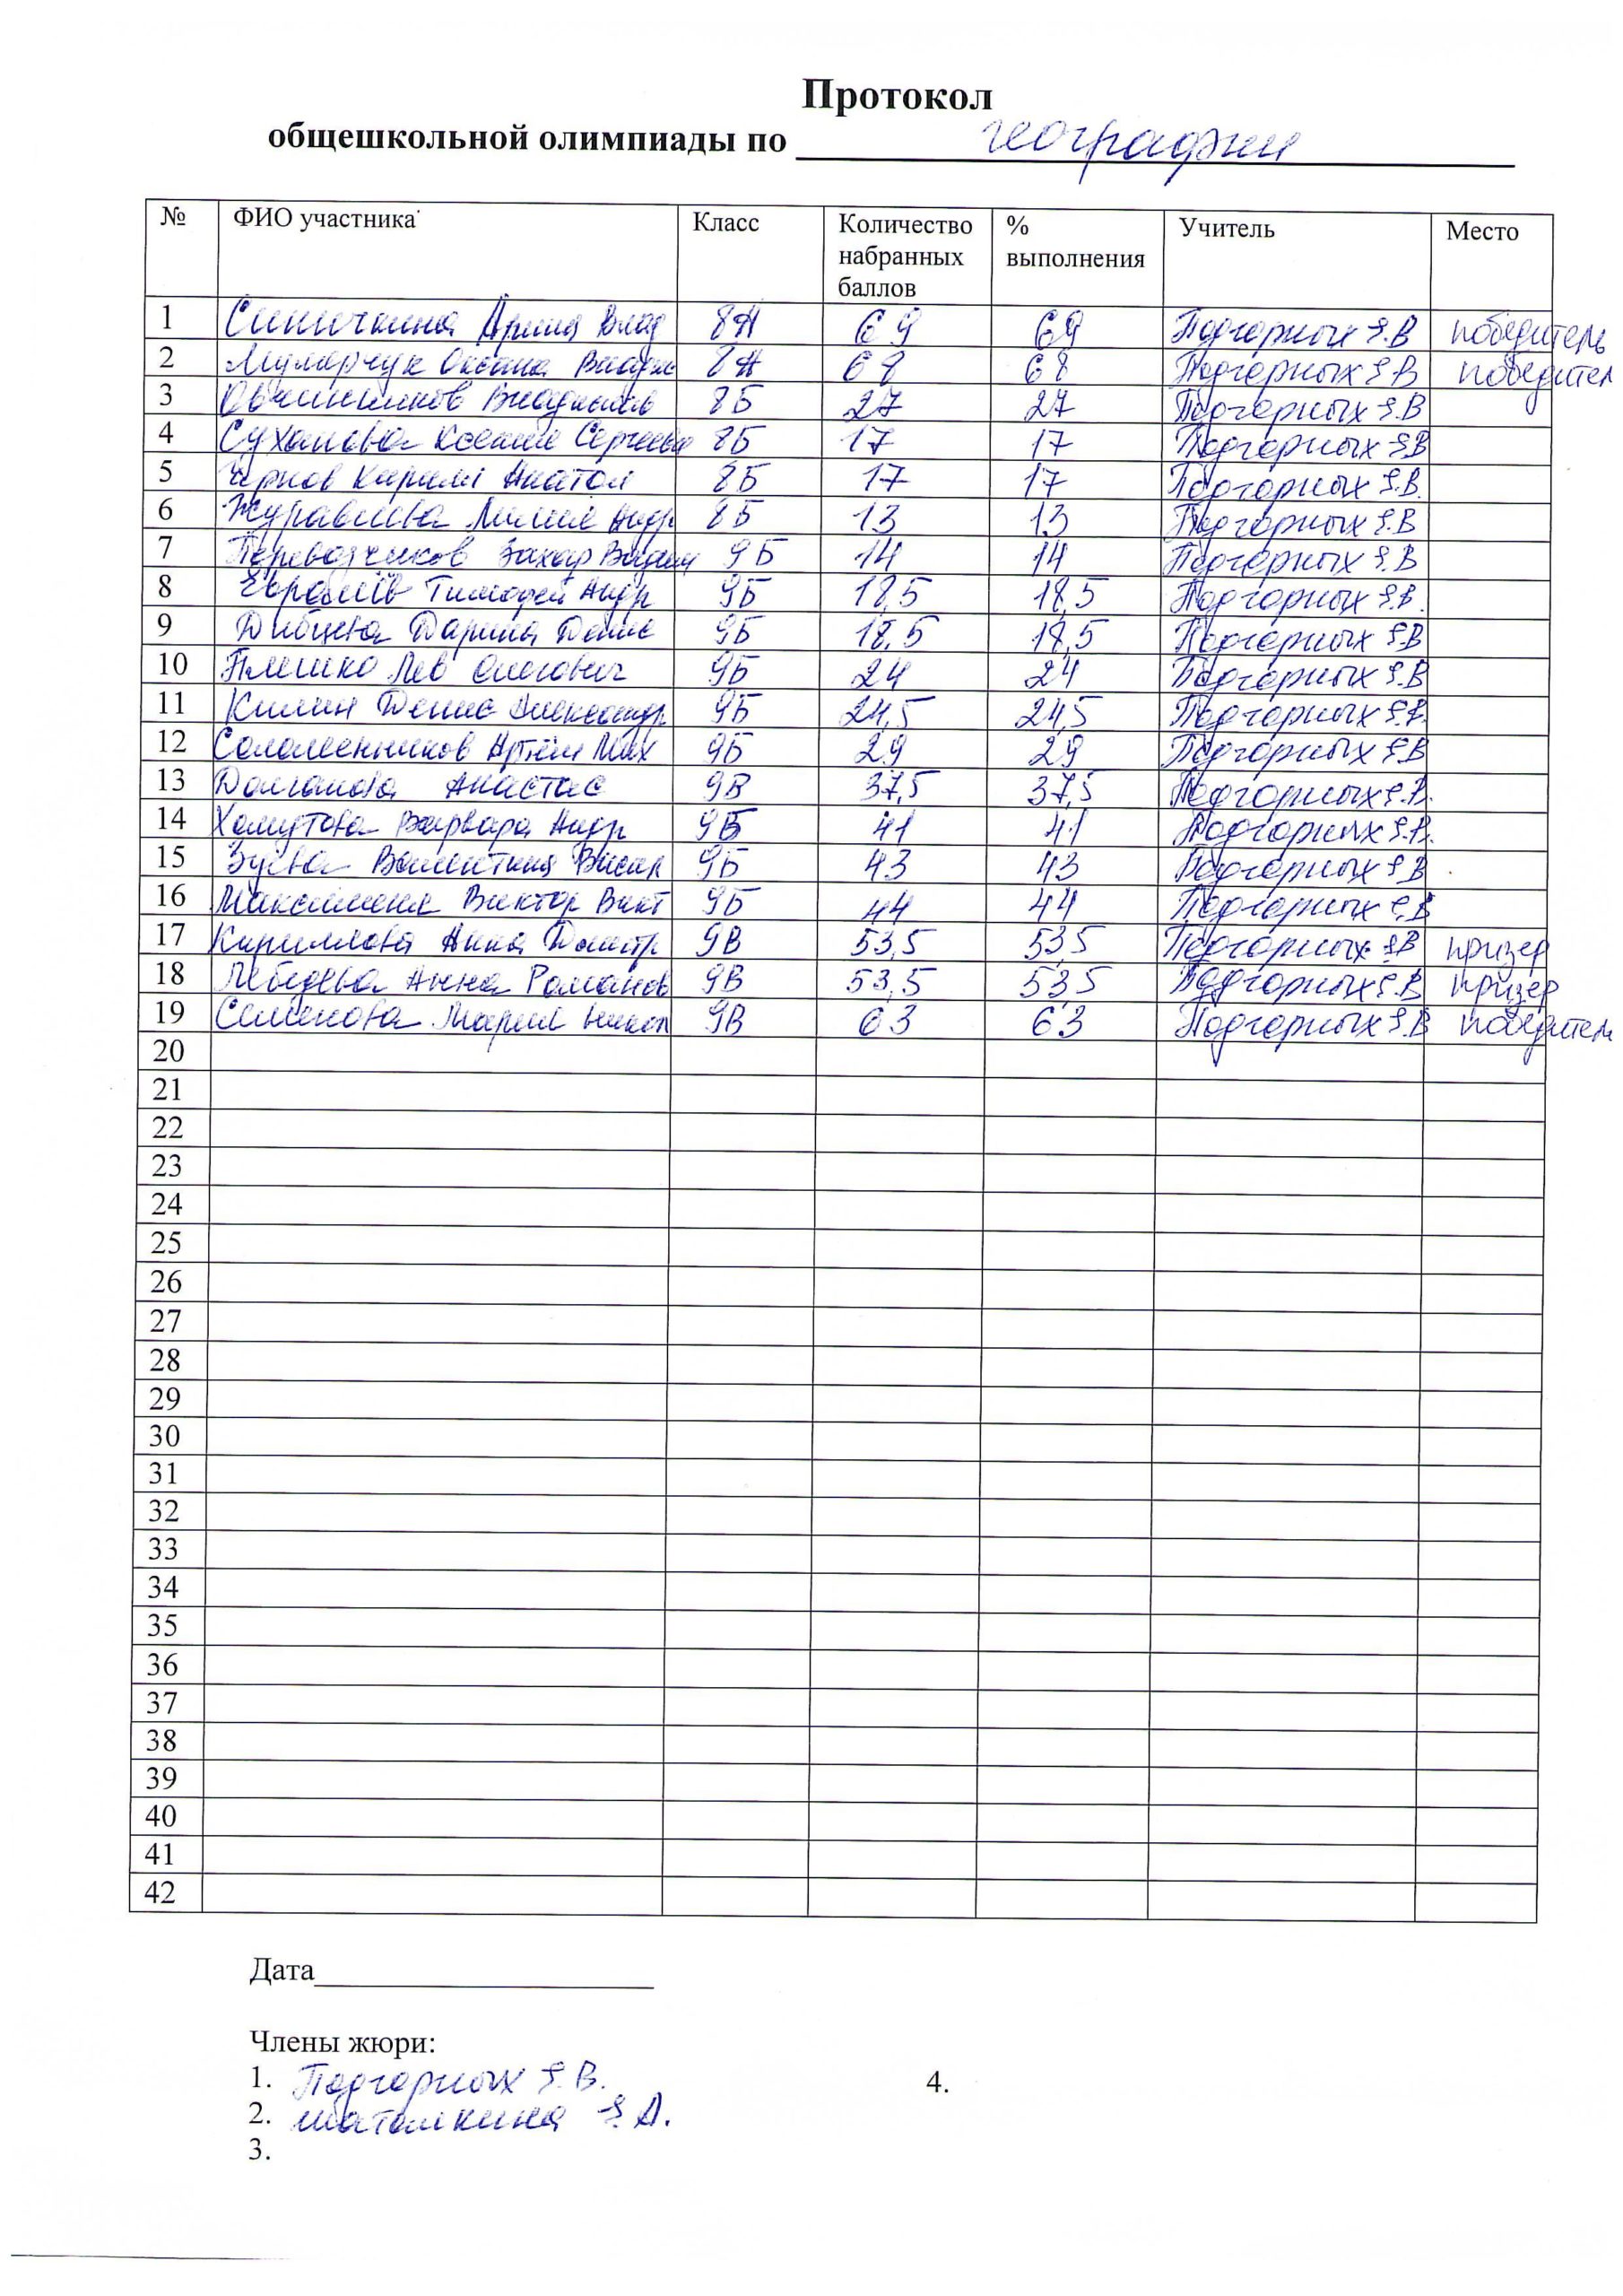 Протокол
общешкольной олимпиады по географии
№ ФИО участника Класс Количество набранных баллов % выполнения Учитель Место
1 Синичкина Арина Влад 8А 69 69 Подгорных Е.В победитель
2 Оксана 8А 68 68 Подгорных Е.В победител
3 Овчинников Владислав 8Б 27 27 Подгорных Е.В
4 Суханова Ксения Сергеевн 8Б 17 17 Подгорных Е.В
5 Чернов Кирилл Анатол 8Б 17 17 Подгорных Е.В.
6 Журавлева Лилия Андр 8Б 13 13 Подгорных Е.В
7 Перевозчиков Захар Вадим 9Б 14 14 Подгорных Е.В
8 Тимофей Андр 9Б 18,5 18,5 Подгорных Е.В.
9 Дарина Денис 9Б 18,5 18,5 Подгорных Е.В
10 Плешко Лев Олегович 9Б 24 24 Подгорных Е.В
11 Килин Денис Александр 9Б 24,5 24,5 Подгорных Е.В.
12 Соломенников Артём Мих 9Б 29 29 Подгорных Е.В
13 Долганова Анастас 9В 37,5 37,5 Подгорных Е.В.
14 Хомутова Варвара Андр 9Б 41 41 Подгорных Е.В.
15 Зуева Валентина Васил 9Б 43 43 Подгорных Е.В
16 Виктор Викт 9Б 44 44 Подгорных Е.В
17 Кириллова Анна Дмитр 9В 53,5 53,5 Подгорных Е.В призер
18 Лебедева Анна Романов 9В 53,5 53,5 Подгорных Е.В призер
19 Семенова Мария Никол 9В 63 63 Подгорных Е.В победитель
20
21
22
23
24
25
26
27
28
29
30
31
32
33
34
35
36
37
38
39
40
41
42
Дата
Члены жюри:
1. Подгорных Е.В. 4.
2. Шаталкина Е.А.
3.